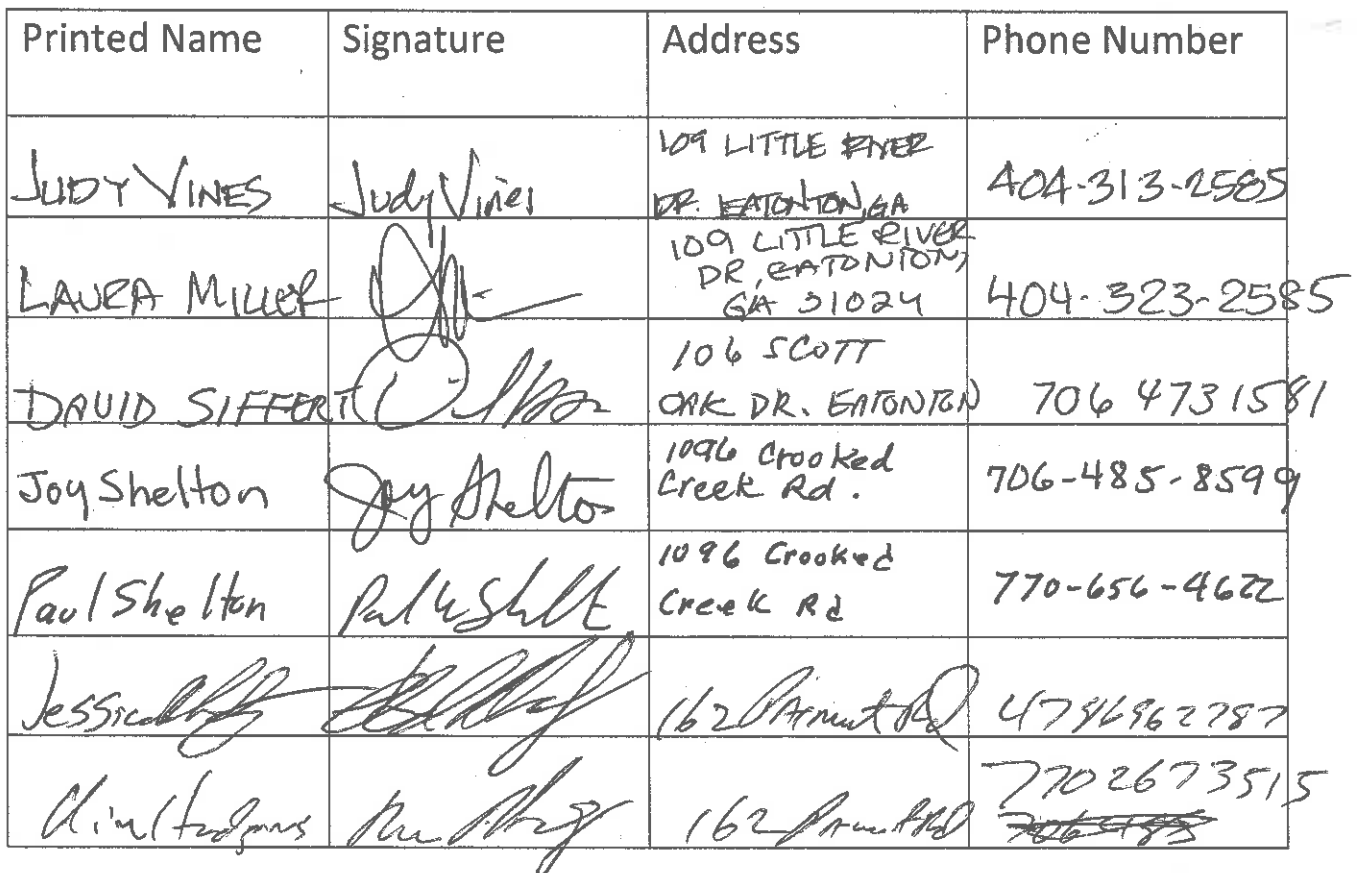 Printed Name Signature Address Phone Number
JUDY VINES Judy Vines 109 LITTLE RIVER
DR. EATONTON, GA 404-313-2585
LAURA MILLER 109 LITTLE RIVER
DR, EATONTON,
GA 31024 404-323-2585
DAVID SIFFERT 106 SCOTT
OAK DR. EATONTON 706 473 1581
Joy Shelton Joy Shelton 1096 Crooked
Creek Rd. 706-485-8599
Paul Shelton 1096 Crooked
Creek Rd 770-656-4622
Jessica 162 Rd 4786962787
162 Rd 7702673515